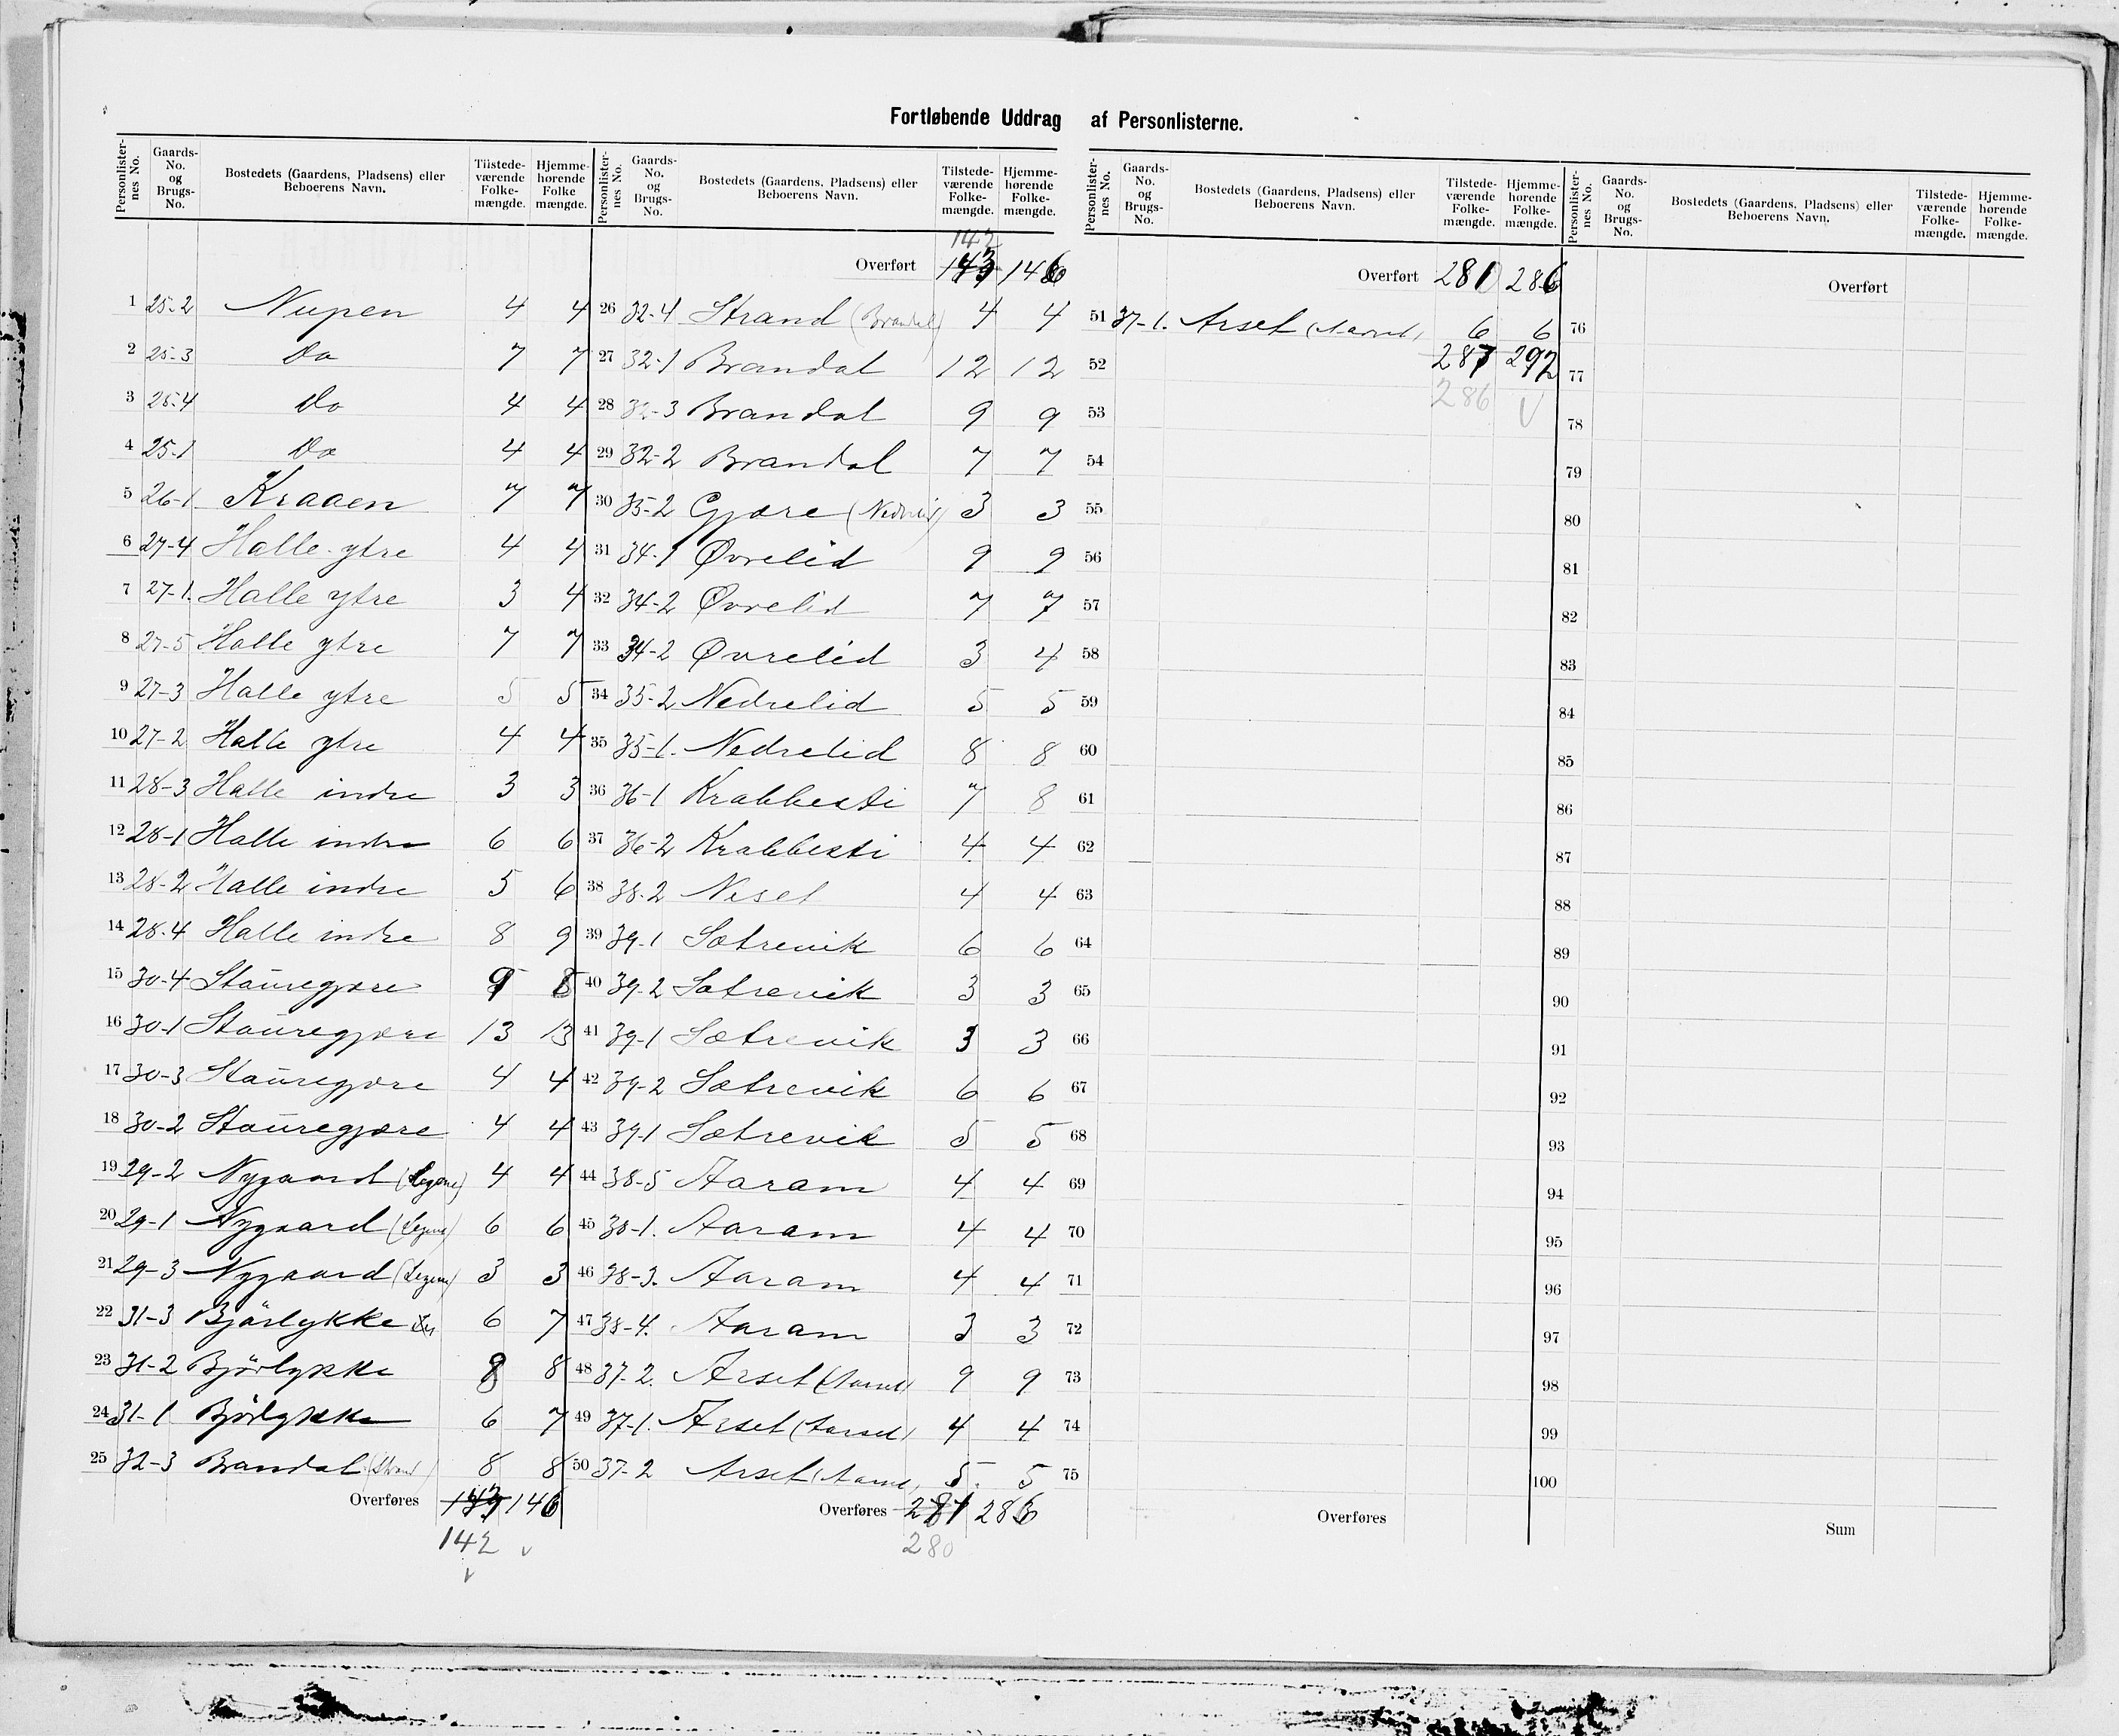 Fortløbende Uddrag af Personlisterne.
Personlister-nes No. Gaards-No. og Brugs-No. Bostedets (Gaardens, Pladsens) eller Beboerens Navn. Tilstede-værende Folke-mængde. Hjemme-hørende Folke mængde.
1 25-2 Nupen 4 4
2 25-3 Do 7 7
3 25-4 Do 4 4
4 25-1 Do 4 4
5 26-1 Kraaen 7 7
6 27-4 Halle ytre 4 4
7 27-1. Halle ytre 3 4
8 27-5 Halle ytre 7 7
9 27-3 Halle ytre 5 5
10 27-2 Halle ytre 4 4
11 28-3 Halle indre 3 3
12 28-1 Halle indre 6 6
13 28-2 Halle indre 5 6
14 28-4 Halle indre 8 9
15 30-4 Stauregjære
16 30-1 Stauregjære 13 13
17 30-3 Stauregjære 4 4
18 30-2 Stauregjære 4 4
19 29-2 Nygaard 4 4
20 29-1 Nygaard 6 6
21 29-3 Nygaard 3 3
22 31-3 Bjørlykke 6 7
23 31-2 Bjørlykke 8 8
24 31-1 Bjørlykke 6 7
25 32-3 Brandal (Strand) 8 8
Overføres 146
142
Personlister-nes No. Gaards-No. og Brugs-No. Bostedets (Gaardens, Pladsens) eller Beboerens Navn. Tilstede-værende Folke-mængde. Hjemme-hørende Folke-mængde.
142
Overført 143 146
26 32-4 Strand (Brandal) 4 4
27 32-1 Brandal 12 12
28 32-3 Brandal 9 9
29 32-2 Brandal 7 7
30 35-2 Gjære (Nedrelid) 3 3
31 34-1 Øvrelid 9 9
32 34-2 Øvrelid 7 7
33 34-2 Øvrelid 3 4
34 35-2 Nedrelid 5 5
35 35-1. Nedrelid 8 8
36 36-1 Krabbesti 7 8
37 36-2 Krabbesti 4 4
38 38-2 Neset 4 4
39 39-1 Sætrevik 6 6
40 39-2 Sætrevik 3 3
41 39-1 Sætrevik 3 3
42 39-2 Sætrevik 6 6
43 39-1 Sætrevik 5 5
44 38-5 Aaram 4 4
45 38-1. Aaram 4 4
46 38-3. Aaram 4 4
47 38-4. Aaram 3 3
48 37-2. Arset (Aarset) 9 9
49 37-1. Arset (Aarset) 4 4
50 37-2 Arset (Aarset) 5 5
Overføres 281 286
280
Personlister-nes No. Gaards-No. og Brugs-No. Bostedets (Gaardens, Pladsens) eller Beboerens Navn. Tilstede-værende Folke-mængde. Hjemme-hørende Folke-mængde.
Overført 281 286
51 37-1. Arset (Aarset) 6 6
52 287 292
53 286
54
55
56
57
58
59
60
61
62
63
64
65
66
67
68
69
70
71
72
73
74
75
Overføres
Personlister-nes No. Gaards-No. og Brugs-No. Bostedets (Gaardens, Pladsens) eller Beboerens Navn. Tilstede-værende Folke-mængde. Hjemme-hørende Folke-mængde.
Overført
76
77
78
79
80
81
82
83
84
85
86
87
88
89
90
91
92
93
94
95
96
97
98
99
100
Sum